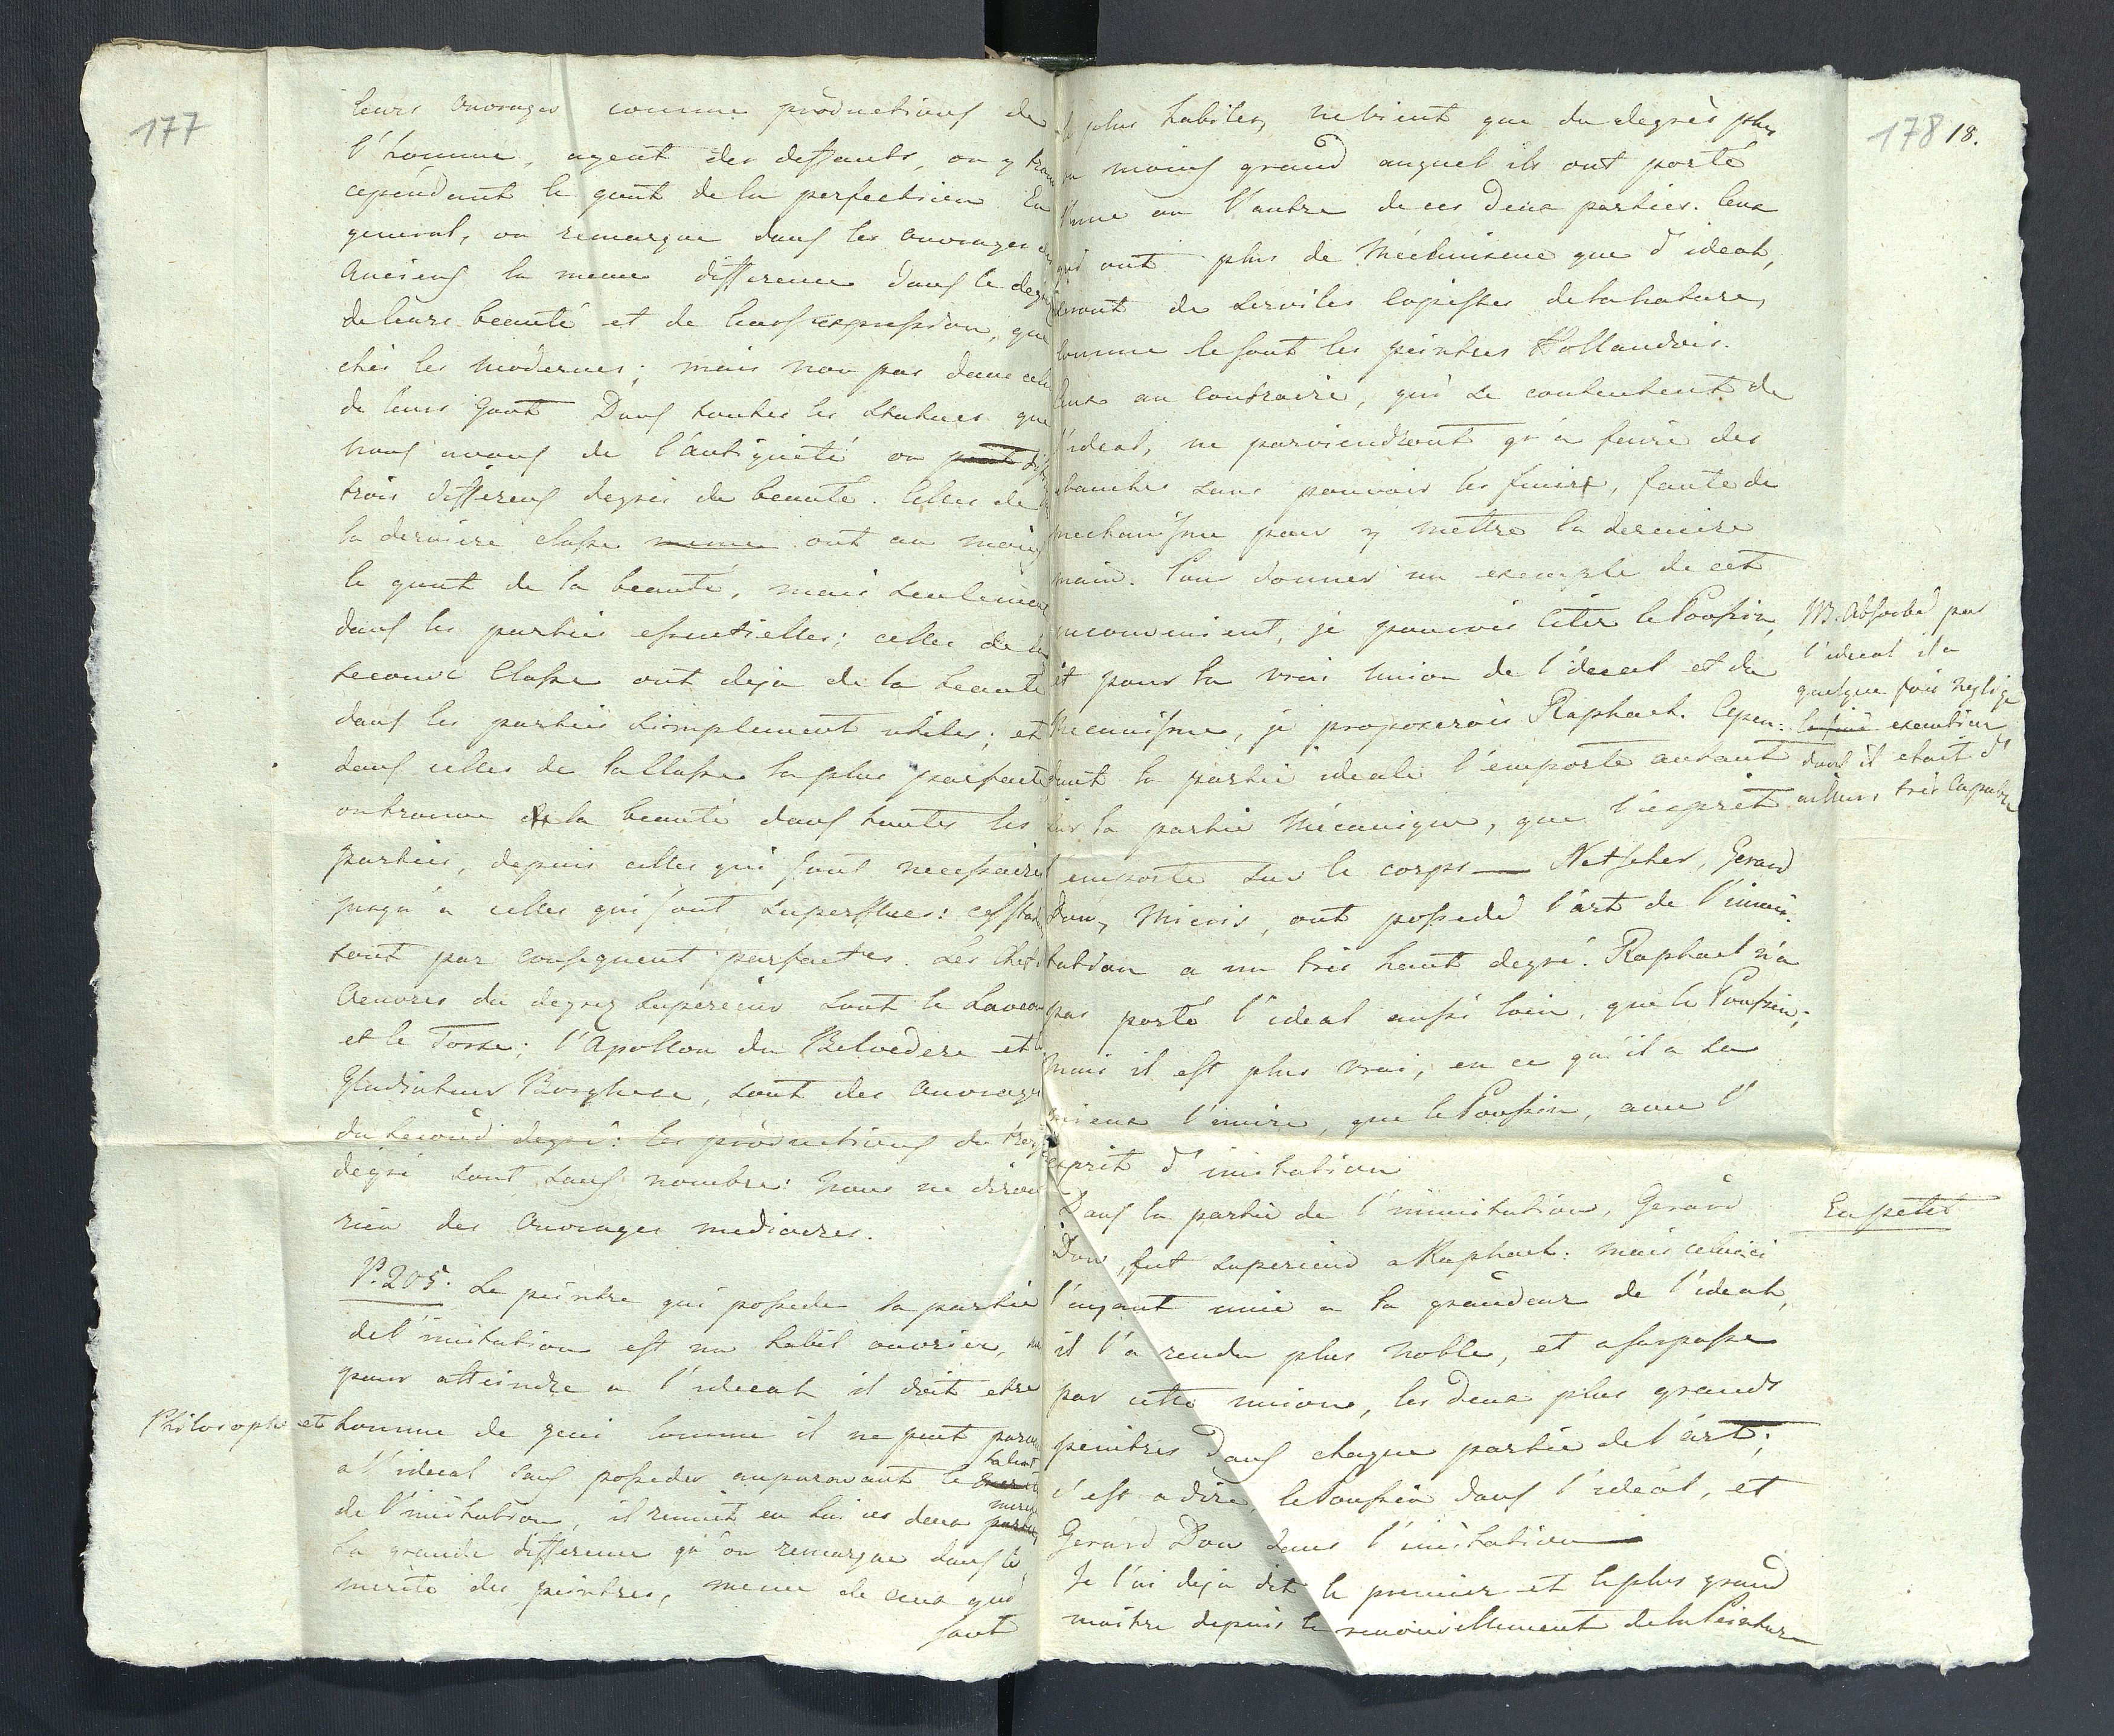 177
leurs ouvrages comme productions de
l'homme, ayent des deffauts, on y trou
cependant le gout de la perfection. En
general, on remarque dans les ouvrages des
Anciens la meme difference dans le degré
de leurs beauté et de leurs expression, que
chés les modernes; mais non pas dans celui
de leurs Gout. Dans toutes les statues que
nous avons de l'antiquité on peut
trois differens degrés de beauté. Celles de
la derniere classe meme ont au moins
le gout de la beauté, mais seulement
dans les parties essentielles; celles de la
seconde Classe ont deja de la beauté
dans les parties simplement utiles; et
dans celles de la Classe la plus parfaite
on trouve de la beauté dans toutes les
parties, depuis celles qui sont necessaires
jusqu'a celles qui sont superflues: ces statues
sont par consequent parfaites. Les Chefs
Oeuvres du degrez superieur sont le Laocoon
et le Torse; l'Apollon du Belvedere et le
Gladiateur Borghese, sont des ouvrages
du second degré: les productions du trois
degré sont sans nombre: Nous ne dirons
rien des Ouvrages mediocres.
P. 205. Le peintre qui possede la partie
de l'imitation est un habil ouvrier, mais
pour atteindre a l'ideeal il doit etre
Philosophe et homme de genie comme il ne peut parvenir
a l'ideeal sans posseder auparavant le talent
de l'imitation, il reunit en lui ces deux merites parties
La grande difference qu'on remarque dans le
merite des peintres, meme de ceux qui
sont
178 18.
les plus habiles, ne vient que du degrès plus
ou moins grand auquel ils ont porté
l'une ou l'autre de ces deux parties. Ceux
qui ont plus de Méchanisme que d'ideal,
seront de serviles Copistes de la Nature,
comme le sont les peintres Hollandois.
Ceux au contraire, qui se contentent de
l'ideal, ne parviendront qu'a faire des
ebauches sans pouvoir les finirs, faute de
mechanisme pour y mettre la derniere
main. Pour donner un exemple de cet
inconvenient, je pourrois citer le Poussin,
et pour la vrai union de l'ideeal et du
Mecanisme, je proposerois Raphael. Cepen:
dant la partie ideale l'emporte autant
sur la partie Mécanique, que l'esprit
l'emporte sur le corps — Netscher, Gerard
Dou, Mieris, ont possedé l'art de l'imi:
tation a un tres haut degré. Raphael n'a
pas porté l'ideal aussi loin, que le Poussin;
mais il est plus vrai, en ce qu'il a su
mieux l'unire, que le Poussin, avec l'
esprit d'imitation
NB. Absorbé par
l'ideeal il a
quelque fois negligé
la fine execution
dont il etoit d'
ailleurs très Capable
Dans la partie de l'imitation, Gerard
Dou, fut superieur a Raphael: mais celui ci
En petit
l'ayant unie a la grandeur de l'ideal,
il l'a rendu plus noble, et a surpassé
par cette union, les deux plus grands
peintres dans chaque partie de l'art;
c'est a dire, le Poussin dans l'ideal, et
Gerard Dou dans l'imitation —
Je l'ai deja dit le premier et le plus grand
maitre depuis le renouvellement de la Peinture